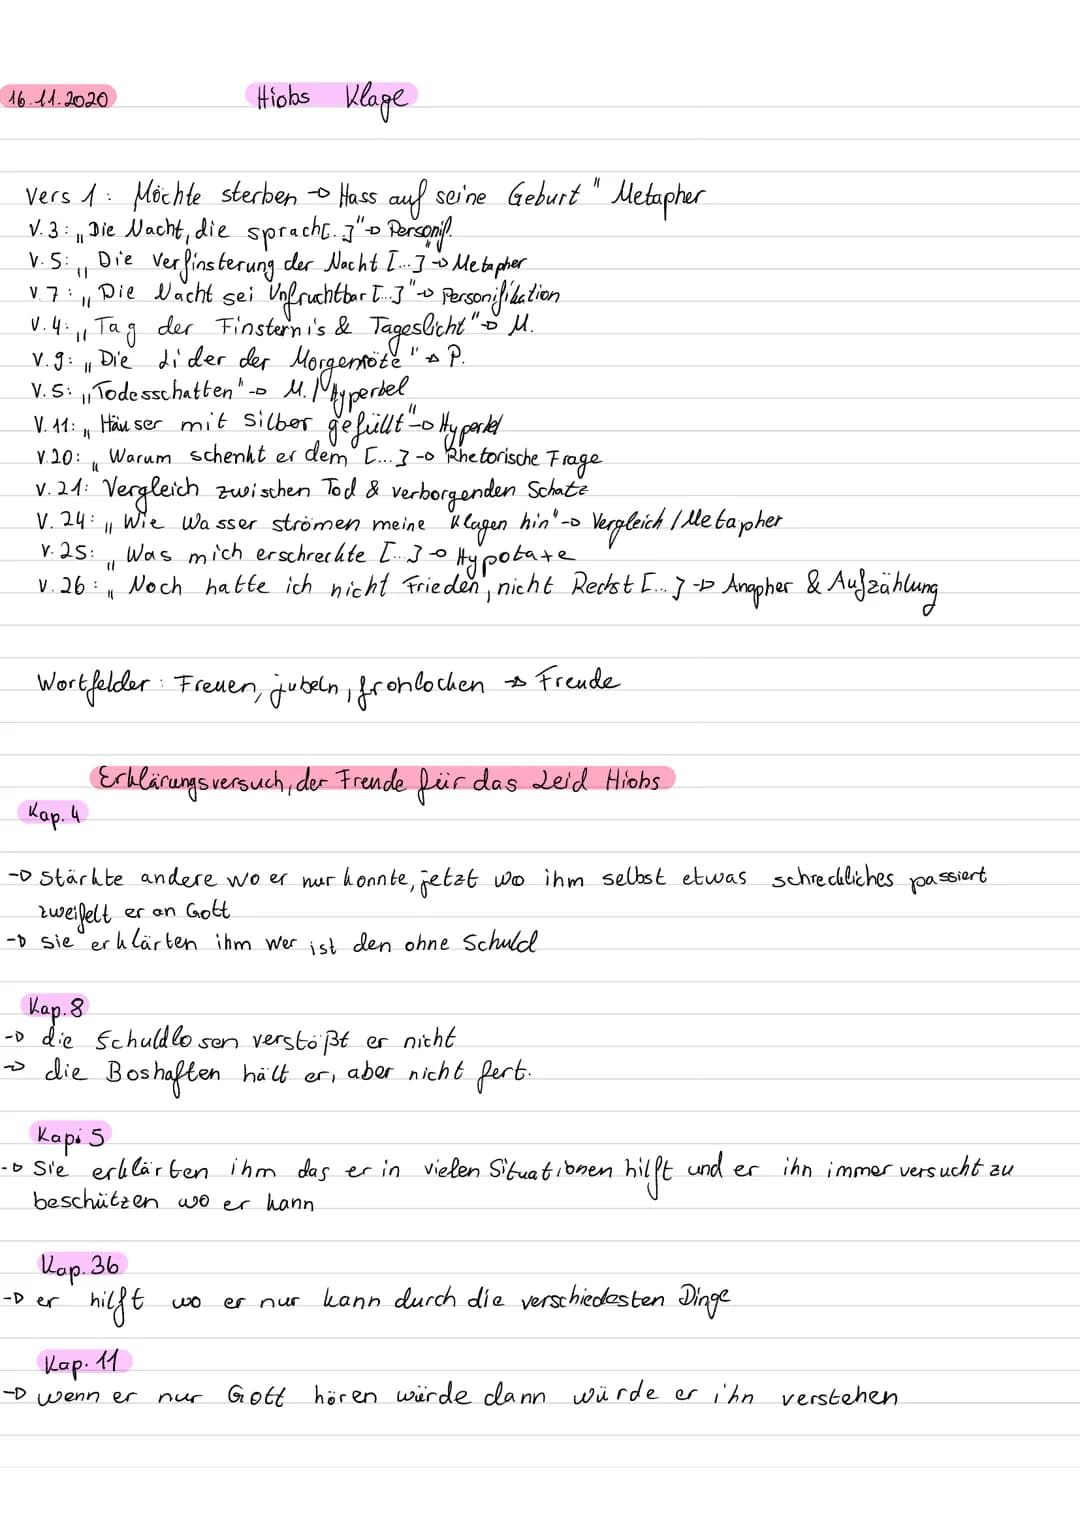 16.11.2020
Hiobs Klage
Vers 1: Möchte sterben → Hass auf seine Geburt" Metapher
V.3: „Die Nacht, die sprach[..]"→ Personif.
V.5: „Die Verfinsterung der Nacht [...]"→ Metapher
V.7: „Die Nacht sei Unfruchtbar [...]"→ Personifikation
V.4: „Tag der Finsternis & Tageslicht"→ M.
V.9: „Die Lider der Morgenröte"→ P.
V.5: „Todesschatten"→ M./Hyperbel
V.11: „Häuser mit Silber gefüllt"→ Hyperbel
V.20: „Warum schenkt er dem [...] → Rhetorische Frage
V.21: Vergleich zwischen Tod & verborgenden Schatz
V.24: „Wie Wasser strömen meine Klagen hin"→ Vergleich / Metapher
V.25: „Was mich erschreckte [...] → Hypotaxe
V.26: „Noch hatte ich nicht Frieden, nicht Rechst [...] → Anapher & Aufzählung
Wortfelder: Freuen, jubeln, frohlocken → Freude
Erklärungsversuch, der Freude für das Leid Hiobs
Kap. 4
→ stärkte andere wo er nur konnte, jetzt wo ihm selbst etwas schreckliches passiert
zweifelt er an Gott
→ sie erklärten ihm wer ist den ohne Schuld
Kap. 8
→ die Schuldlosen verstößt er nicht
→ die Boshaften hält er, aber nicht fert.
Kapi 5
→ Sie erklärten ihm das er in vielen Situationen hilft und er ihn immer versucht zu
beschützen wo er kann
Kap. 36
→ er hilft wo er nur kann durch die verschiedesten Dinge
Kap. 11
→ wenn er nur Gott hören würde dann würde er ihn verstehen